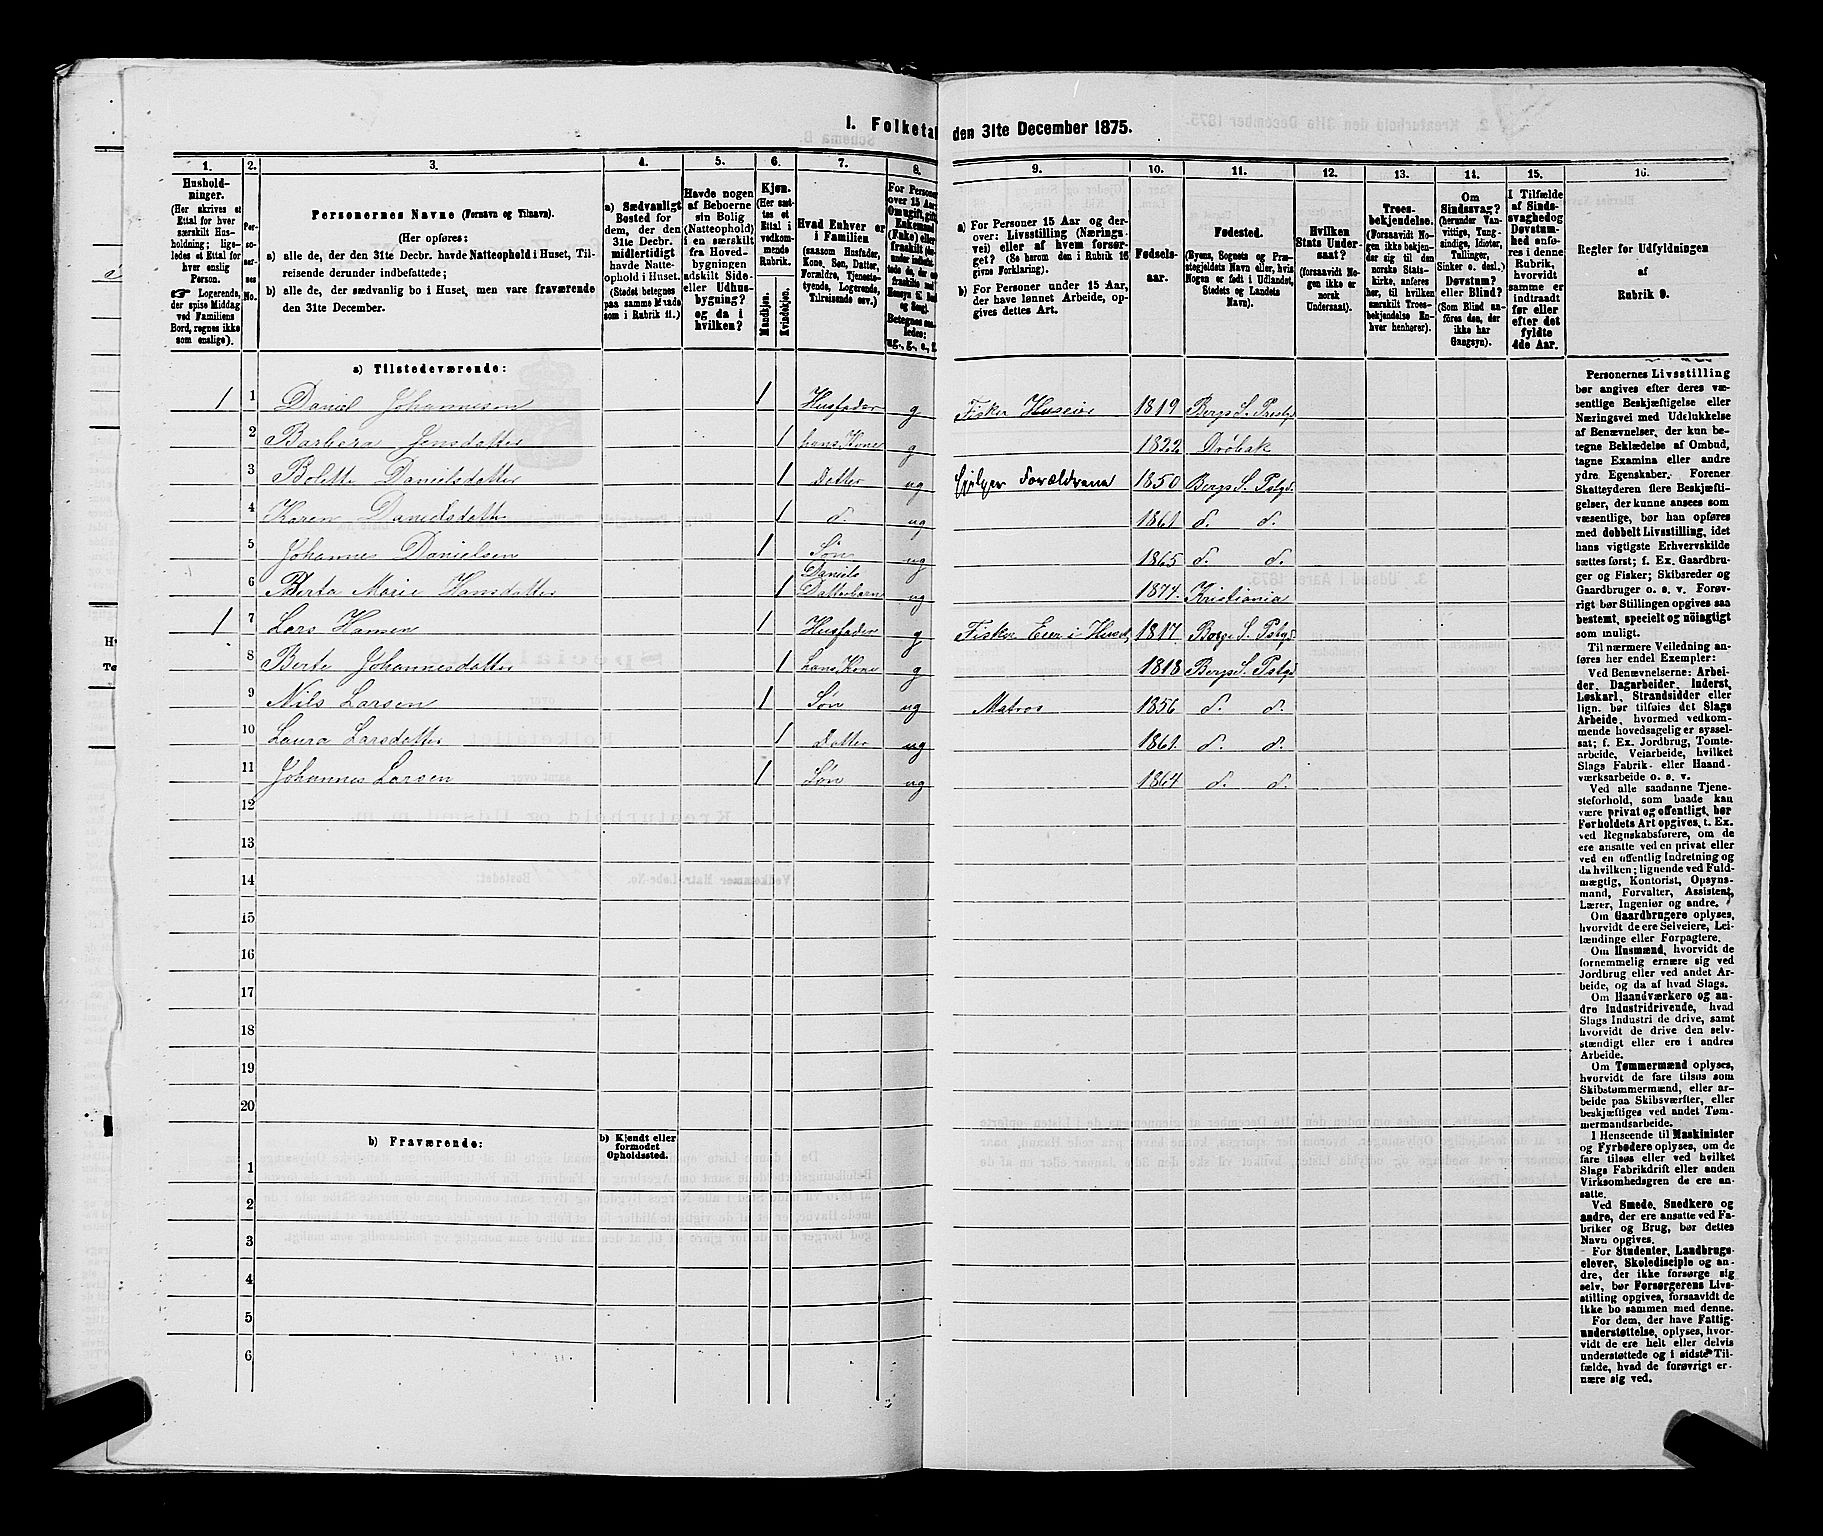 I. Folketal
den 31te December 1875.
1. 2. 3. 4. 5. 6. 7. 8. 9. 10. 11. 12. 13. 14. 15. 16.
Hushold-
ninger.
(Her skrives et
Ettal for hver
særskilt Hus-
holdning; lige-
ledes et Ettal for
hver enslig
Person.
☞ Logerende,
der spise Middag
ved Familiens
Bord, regnes ikke
som enslige).
Per-
so-
ner-
nes
No.
Personernes Navne (Fornavn og Tilnavn).
(Her opføres:
a) alle de, der den 31te Decbr. havde Natteophold i Huset, Til-
reisende derunder indbefattede;
b) alle de, der sædvanlig bo i Huset, men vare fraværende
den 31te December.
a) Sædvanligt
Bosted for
dem, der den
31te Decbr.
midlertidigt
havde Natte-
ophold i Huset.
(Stedet betegnes
paa samme Maade
som i Rubrik 11.)
Havde nogen
af Beboerne
sin Bolig
(Natteophold)
i en særskilt
fra Hoved-
bygningen
adskilt Side-
eller Udhus-
bygning?
og da i
hvilken?
Kjøn.
(Her sæt-
tes et
Ettal i
vedkom-
mende
Rubrik.
Mandkjøn.
Kvindekjøn.
Hvad Enhver er
i Familien
(saasom Husfader,
Kone, Søn, Datter,
Forældre, Tjeneste-
tyende, Logerende,
Tilreisende osv.)
For Personer
over 15 Aar:
Om ugift, gift,
Enkemand
(Enke) eller
fraskilt
a) For Personer 15 Aar og der-
over: Livsstilling (Nærings-
vei) eller af hvem forsør-
get? (Se herom den i Rubrik 16
givne Forklaring).
b) For Personer under 15 Aar,
der have lønnet Arbeide, op-
gives dettes Art.
Fødsels-
aar.
Fødested.
(Byens, Sognets og Præ-
stegjeldets Navn eller, hvis
Nogen er født i Udlandet,
Stedets og Landets
Navn).
Hvilken
Stats Under-
saat?
(forsaavidt No-
gen ikke er
norsk
Undersaat).
Troes-
bekjendelse.
(Forsaavidt No-
gen ikke bekjen-
der sig til den
norske Stats-
kirke, anføres
her, til hvilken
særskilt Troes-
bekjendelse En-
hver henhører).
Om
Sindssvag?
(herunder Van-
vittige, Tung-
sindige, Idioter,
Tullinger,
Sinker o. desl.)
Døvstum?
eller Blind?
(Som Blind an-
føres den, der
ikke har
Gangsyn).
I Tilfælde
af Sinds-
svaghed og
Døvstum-
hed anfø-
res i denne
Rubrik,
hvorvidt
samme er
indtraadt
før eller
efter det
fyldte
4de Aar.
Regler for Udfyldningen
af
Rubrik 9.
a) Tilstedeværende:
1 1 Daniel Johannesen 1 Husfader g Fisker Huseier 1819 Bergs S. Prestgd
2 Barbera Jensdatter 1 hans Kone g 1822 Drøbak
3 Bolette Danielsdatter 1 Datter ug Hjelper Forældrene 1850 Bergs S. Pstgd.
4 Karen Danielsdatte 1 d. ug 1861 d. d.
5 Johannes Danielsen 1 Søn ug 1865 d. d.
6 Berta Marie Hansdatter 1 Daniels Datterbarn ug 1874. Kristiania
1 7 Lars Hansen 1 Husfader g Fisker Eier i Huset 1817 Bergs S. Pstgd
8 Berte Johannesdatter 1 hans Kone g 1818 Bergs S. Pstgd
9 Nils Larsen 1 Søn ug Matros 1856 d. d.
10 Laura Larsdatter 1 Datter ug 1861. d. d.
11 Johannes Larsen 1 Søn ug 1864 d. d.
12
13
14
15
16
17
18
19
20
b) Fraværende:
b) Kjendt eller
formodet
Opholdssted.
1
2
3
4
5
6
Personernes Livsstilling
bør angives efter deres væ-
sentlige Beskjæftigelse eller
Næringsvei med Udelukkelse
af Benævnelser, der kun be-
tegne Beklædelse af Ombud,
tagne Examina eller andre
ydre Egenskaber. Forener
Skatteyderen flere Beskjæfti-
gelser, der kunne ansees som
væsentlige, bør han opføres
med dobbelt Livsstilling, idet
hans vigtigste Erhvervskilde
sættes først; f. Ex. Gaardbru-
ger og Fisker; Skibsreder og
Gaardbruger o. s. v. Forøv-
rigt bør Stillingen opgives saa
bestemt, specielt og nøiagtigt
som muligt.
Til nærmere Veiledning an-
føres her endel Exempler:
Ved Benævnelserne: Arbei-
der, Dagarbeider, Inderst,
Løskarl, Strandsidder eller
lign. bør tilføies det Slags
Arbeide, hvormed vedkom-
mende hovedsagelig er syssel-
sat; f. Ex. Jordbrug, Tomte-
arbeide, Veiarbeide, hvilket
Slags Fabrik- eller Haand-
værksarbeide o. s. v.
Ved alle saadanne Tjene-
steforhold, som baade kan
være privat og offentligt, bør
Forholdets Art opgives, t. Ex.
ved Regnskabsførere, om de
ere ansatte ved en privat eller
ved en offentlig Indretning og
da hvilken; lignende ved Fuld-
mægtig, Kontorist, Opsyns-
mand, Forvalter, Assistent,
Lærer, Ingeniør og andre.
Om Gaardbrugere oplyses,
hvorvidt de ere Selveiere, Lei-
lændinge eller Forpagtere.
Om Husmænd, hvorvidt de
fornemmelig ernære sig ved
Jordbrug eller ved andet Ar-
beide, og da af hvad Slags.
Om Haandværkere og an-
dre Industridrivende, hvad
Slags Industri de drive, samt
hvorvidt de drive den selv-
stændigt eller ere i andres
Arbeide.
Om Tømmermænd oplyses,
hvorvidt de fare tilsøs som
Skibstømmermænd, eller ar-
beide paa Skibsværfter, eller
beskjæftiges ved andet Tøm-
mermandsarbeide.
I Henseende til Maskinister
og Fyrbødere oplyses, om de
fare tilsøs eller ved hvilket
Slags Fabrikdrift eller anden
Virksomhedsgren de ere an-
satte.
Ved Smede, Snedkere og
andre, der ere ansatte ved Fa-
briker og Brug, bør dettes
Navn opgives.
For Studenter, Landbrugs-
elever, Skoledisciple og an-
dre, der ikke forsørge sig
selv, bør Forsørgerens Livs-
stilling opgives, forsaavidt de
ikke bo sammen med denne.
For dem, der have Fattig-
understøttelse, oplyses, hvor-
vidt de ere helt eller delvis
understøttede og i sidste Til-
fælde, hvad de forøvrigt er-
nære sig ved.